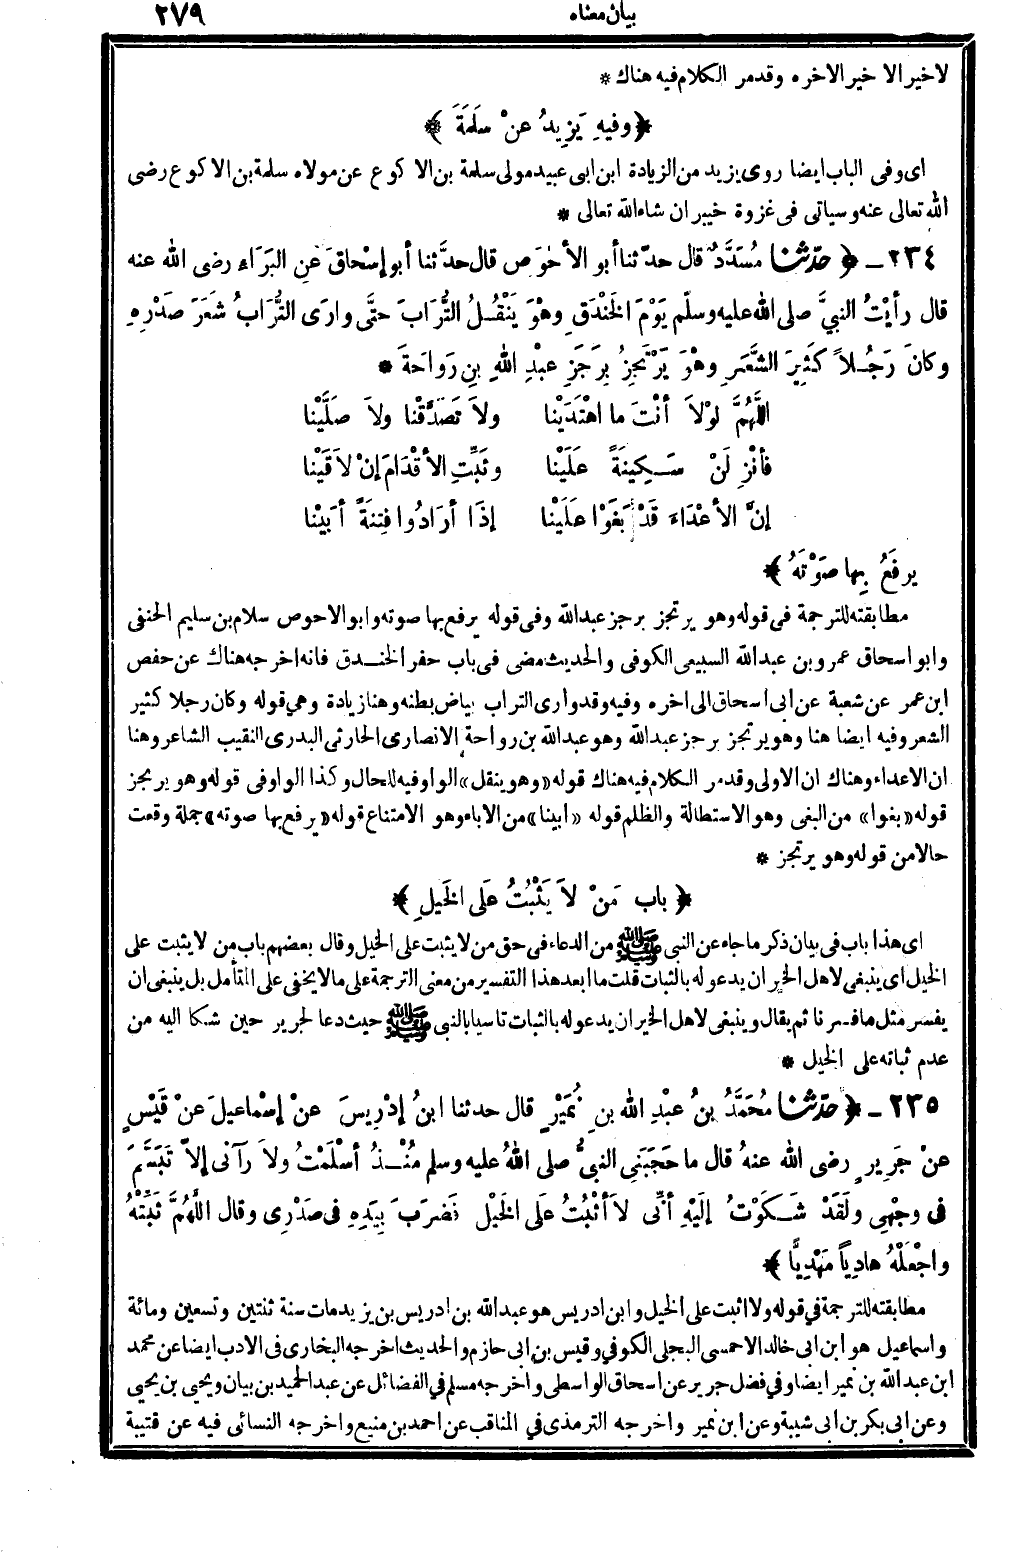 بيان معناه ٢٧٩
لاخير الا خير الاخره وقد مر الكلام فيه هناك *
﴿ وفيهِ يَزِيدُ عنْ سَلَمَةَ ﴾
اى وفى الباب ايضا روى يزيد من الزيادة ابن ابى عبيد مولى سلمة بن الاكوع عن مولاه سلمة بن الاكوع رضى
الله تعالى عنه وسياتى فى غزوة خيبر ان شاء الله تعالى *
٢٣٤ - ﴿ حدّثنا مُسَدَّدٌ قال حدّثنا أبو الأحْوَصِ قال حدَّثنا أبو إسْحاقَ عنِ البَرَاءِ رضى الله عنه
قال رأيْتُ النبيَّ صلى الله عليه وسلّم يَوْمَ الخَنْدَقِ وهْوَ يَنْقُلُ التُّرَابَ حتَّى وارَى التُّرَابُ شَعَرَ صَدْرِهِ
وكانَ رَجُلاً كَثِيرَ الشَّعَرِ وهْوَ يَرْتَجِزُ بِرَجَزِ عبْدِ اللهِ بنِ رَواحَةَ *
اللَّهُمَّ لوْلاَ أنْتَ ما اهْتَدَيْنا ولاَ تَصَدَّقْنا ولاَ صَلَّيْنا
فأنْزِلَنْ سَكِينَةً عَلَيْنا وثَبِّتِ الأقْدَامَ إنْ لاَقَيْنا
إنَّ الأعْدَاءَ قَدْ بَغَوْا عَلَيْنا إذَا أرَادُوا فِتْنَةً أبَيْنا
يرفَعُ بِها صَوْتَهُ ﴾
مطابقته للترجمة فى قوله وهو يرتجز برجز عبدالله وفى قوله يرفع بها صوته وابو الاحوص سلام بن سليم الحنفى
وابو اسحاق عمرو بن عبدالله السبيعى الكوفى والحديث مضى فى باب حفر الخندق فانه اخرجه هناك عن حفص
ابن عمر عن شعبة عن ابى اسحاق الى اخره وفيه وقد وارى التراب بياض بطنه وهنا زيادة وهي قوله وكان رجلا كثير
الشعر وفيه ايضا هنا وهو يرتجز برجز عبدالله وهو عبدالله بن رواحة الانصارى الحارثى البدرى النقيب الشاعر وهنا
ان الاعداء وهناك ان الاولى وقد مر الكلام فيه هناك قوله «وهو ينقل» الواو فيه للحال وكذا الواو فى قوله وهو يرتجز
قوله «بغوا» من البغى وهو الاستطالة والظلم قوله «ابينا» من الاباء وهو الامتناع قوله «يرفع بها صوته» جملة وقعت
حالا من قوله وهو يرتجز *
﴿ باب مَنْ لاَ يَثْبُتُ عَلَى الخَيلِ ﴾
اى هذا باب فى بيان ذكر ما جاء عن النبى ﷺ من الدعاء فى حق من لا يثبت على الخيل وقال بعضهم باب من لا يثبت على
الخيل اى ينبغى لاهل الخير ان يدعو له بالثبات قلت ما ابعد هذا التفسير من معنى الترجمة على ما لا يخفى على المتأمل بل ينبغى ان
يفسر مثل ما فسرنا ثم يقال وينبغى لاهل الخير ان يدعو له بالثبات تاسيا بالنبى ﷺ حيث دعا لجرير حين شكا اليه من
عدم ثباته على الخيل *
٢٣٥ - ﴿ حدّثنا مُحَمَّدُ بنُ عبْدِ اللهِ بنِ نُمَيْرٍ قال حدثنا ابنُ إدْرِيسَ عنْ إسْماعِيلَ عنْ قَيْسٍ
عنْ جَرِيرٍ رضى الله عنهُ قال ما حَجَبَنِى النبيُّ صلى اللهُ عليه وسلم مُنْذُ أسْلَمْتُ ولاَ رآنى إلاَّ تَبَسَّمَ
فى وجْهِى ولَقَدْ شَكَوْتُ إلَيْهِ أنِّى لاَ أثْبُتُ عَلَى الخَيْلِ فَضَرَبَ بِيَدِهِ فى صَدْرِى وقال اللَّهُمَّ ثَبِّتْهُ
واجْعَلْهُ هادِياً مَهْدِيًّا ﴾
مطابقته للترجمة في قوله ولا اثبت على الخيل وابن ادريس هو عبدالله بن ادريس بن يزيد مات سنة ثنتين وتسعين ومائة
واسماعيل هو ابن ابى خالد الاحمسى البجلى الكوفي وقيس بن ابى حازم والحديث اخرجه البخارى فى الادب ايضا عن محمد
ابن عبدالله بن نمير ايضا وفي فضل جرير عن اسحاق الواسطى واخرجه مسلم في الفضائل عن عبد الحميد بن بيان ويحيى بن يحيى
وعن ابى بكر بن ابى شيبة وعن ابن نمير واخرجه الترمذى في المناقب عن احمد بن منيع واخرجه النسائى فيه عن قتيبة